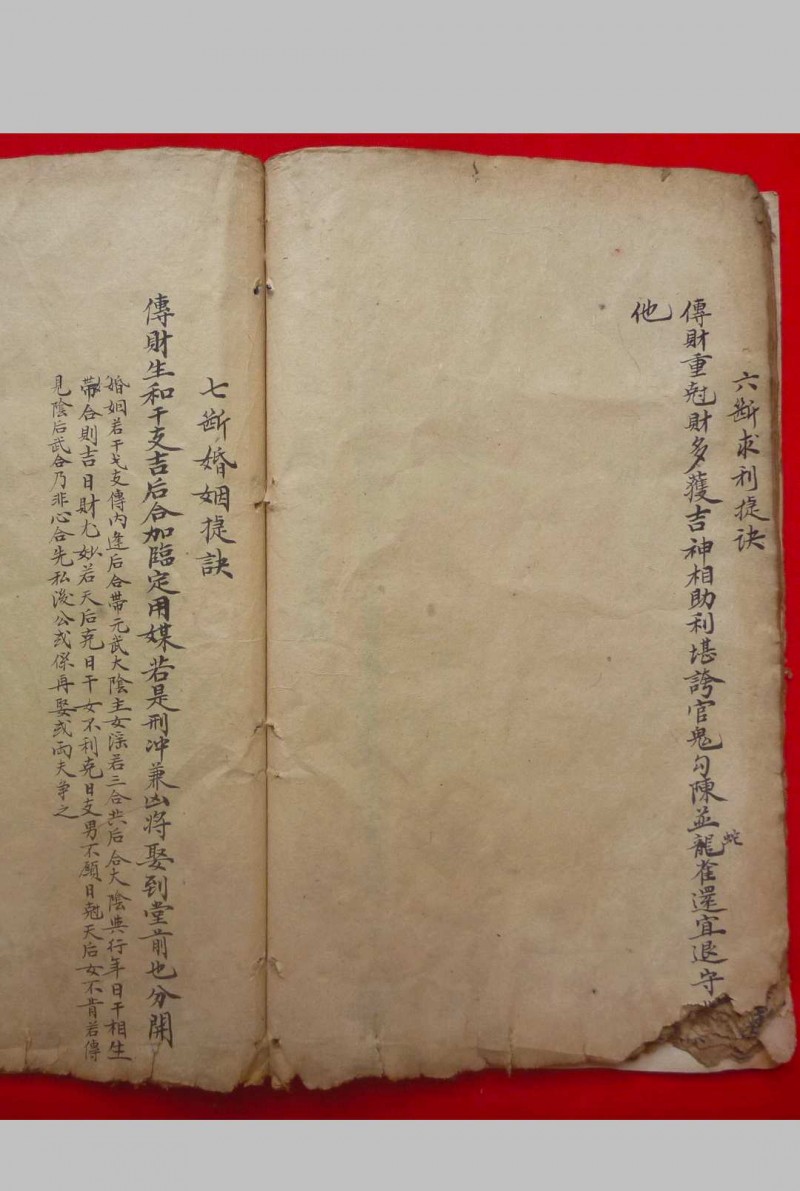 六断求利捷诀
傳財重尅財多獲吉神相助利堪誇官鬼勾陳並龍雀還宜退守
蛇
他
七断婚姻捷訣
傳財生和干支吉后合加臨定用媒若是刑冲兼凶将娶到堂前也分開
婚姻若干戈支傳内逢后合帶元武大陰主女淫若三合共后合大陰與行年日干相生
帶合則吉日財尤妙若天后克日干女不利克日支男不願日尅天后女不肯若傳
見陰后武合乃非心合先私後公或係再娶或両夫争之